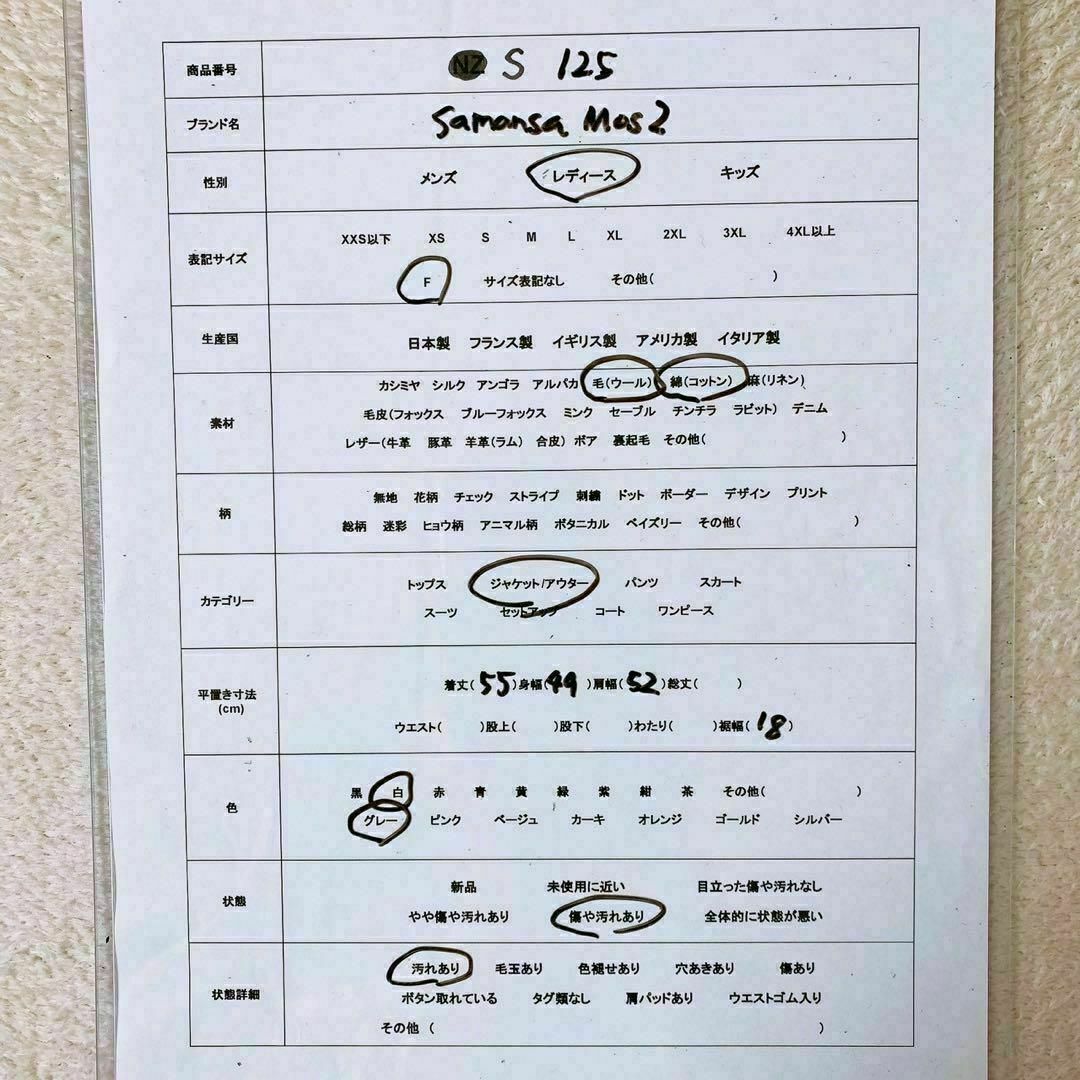 商品番号 NZ S 125
ブランド名 Samansa Mos2
性別 メンズ レディース キッズ
XXS以下 XS S M L XL 2XL 3XL 4XL以上
表記サイズ
F サイズ表記なし その他( )
生産国 日本製 フランス製 イギリス製 アメリカ製 イタリア製
カシミヤ シルク アンゴラ アルパカ 毛(ウール) 綿(コットン) 麻(リネン)
素材 毛皮(フォックス ブルーフォックス ミンク セーブル チンチラ ラビット) デニム
レザー(牛革 豚革 羊革(ラム) 合皮) ボア 裏起毛 その他( )
柄 無地 花柄 チェック ストライプ 刺繍 ドット ボーダー デザイン プリント
総柄 迷彩 ヒョウ柄 アニマル柄 ボタニカル ペイズリー その他( )
カテゴリー トップス ジャケット/アウター パンツ スカート
スーツ セットアップ コート ワンピース
平置き寸法 着丈(55)身幅(49)肩幅(52)総丈( )
(cm) ウエスト( )股上( )股下( )わたり( )裾幅(18)
色 黒 白 赤 青 黄 緑 紫 紺 茶 その他( )
グレー ピンク ベージュ カーキ オレンジ ゴールド シルバー
状態 新品 未使用に近い 目立った傷や汚れなし
やや傷や汚れあり 傷や汚れあり 全体的に状態が悪い
汚れあり 毛玉あり 色褪せあり 穴あきあり 傷あり
状態詳細 ボタン取れている タグ類なし 肩パッドあり ウエストゴム入り
その他 ( )